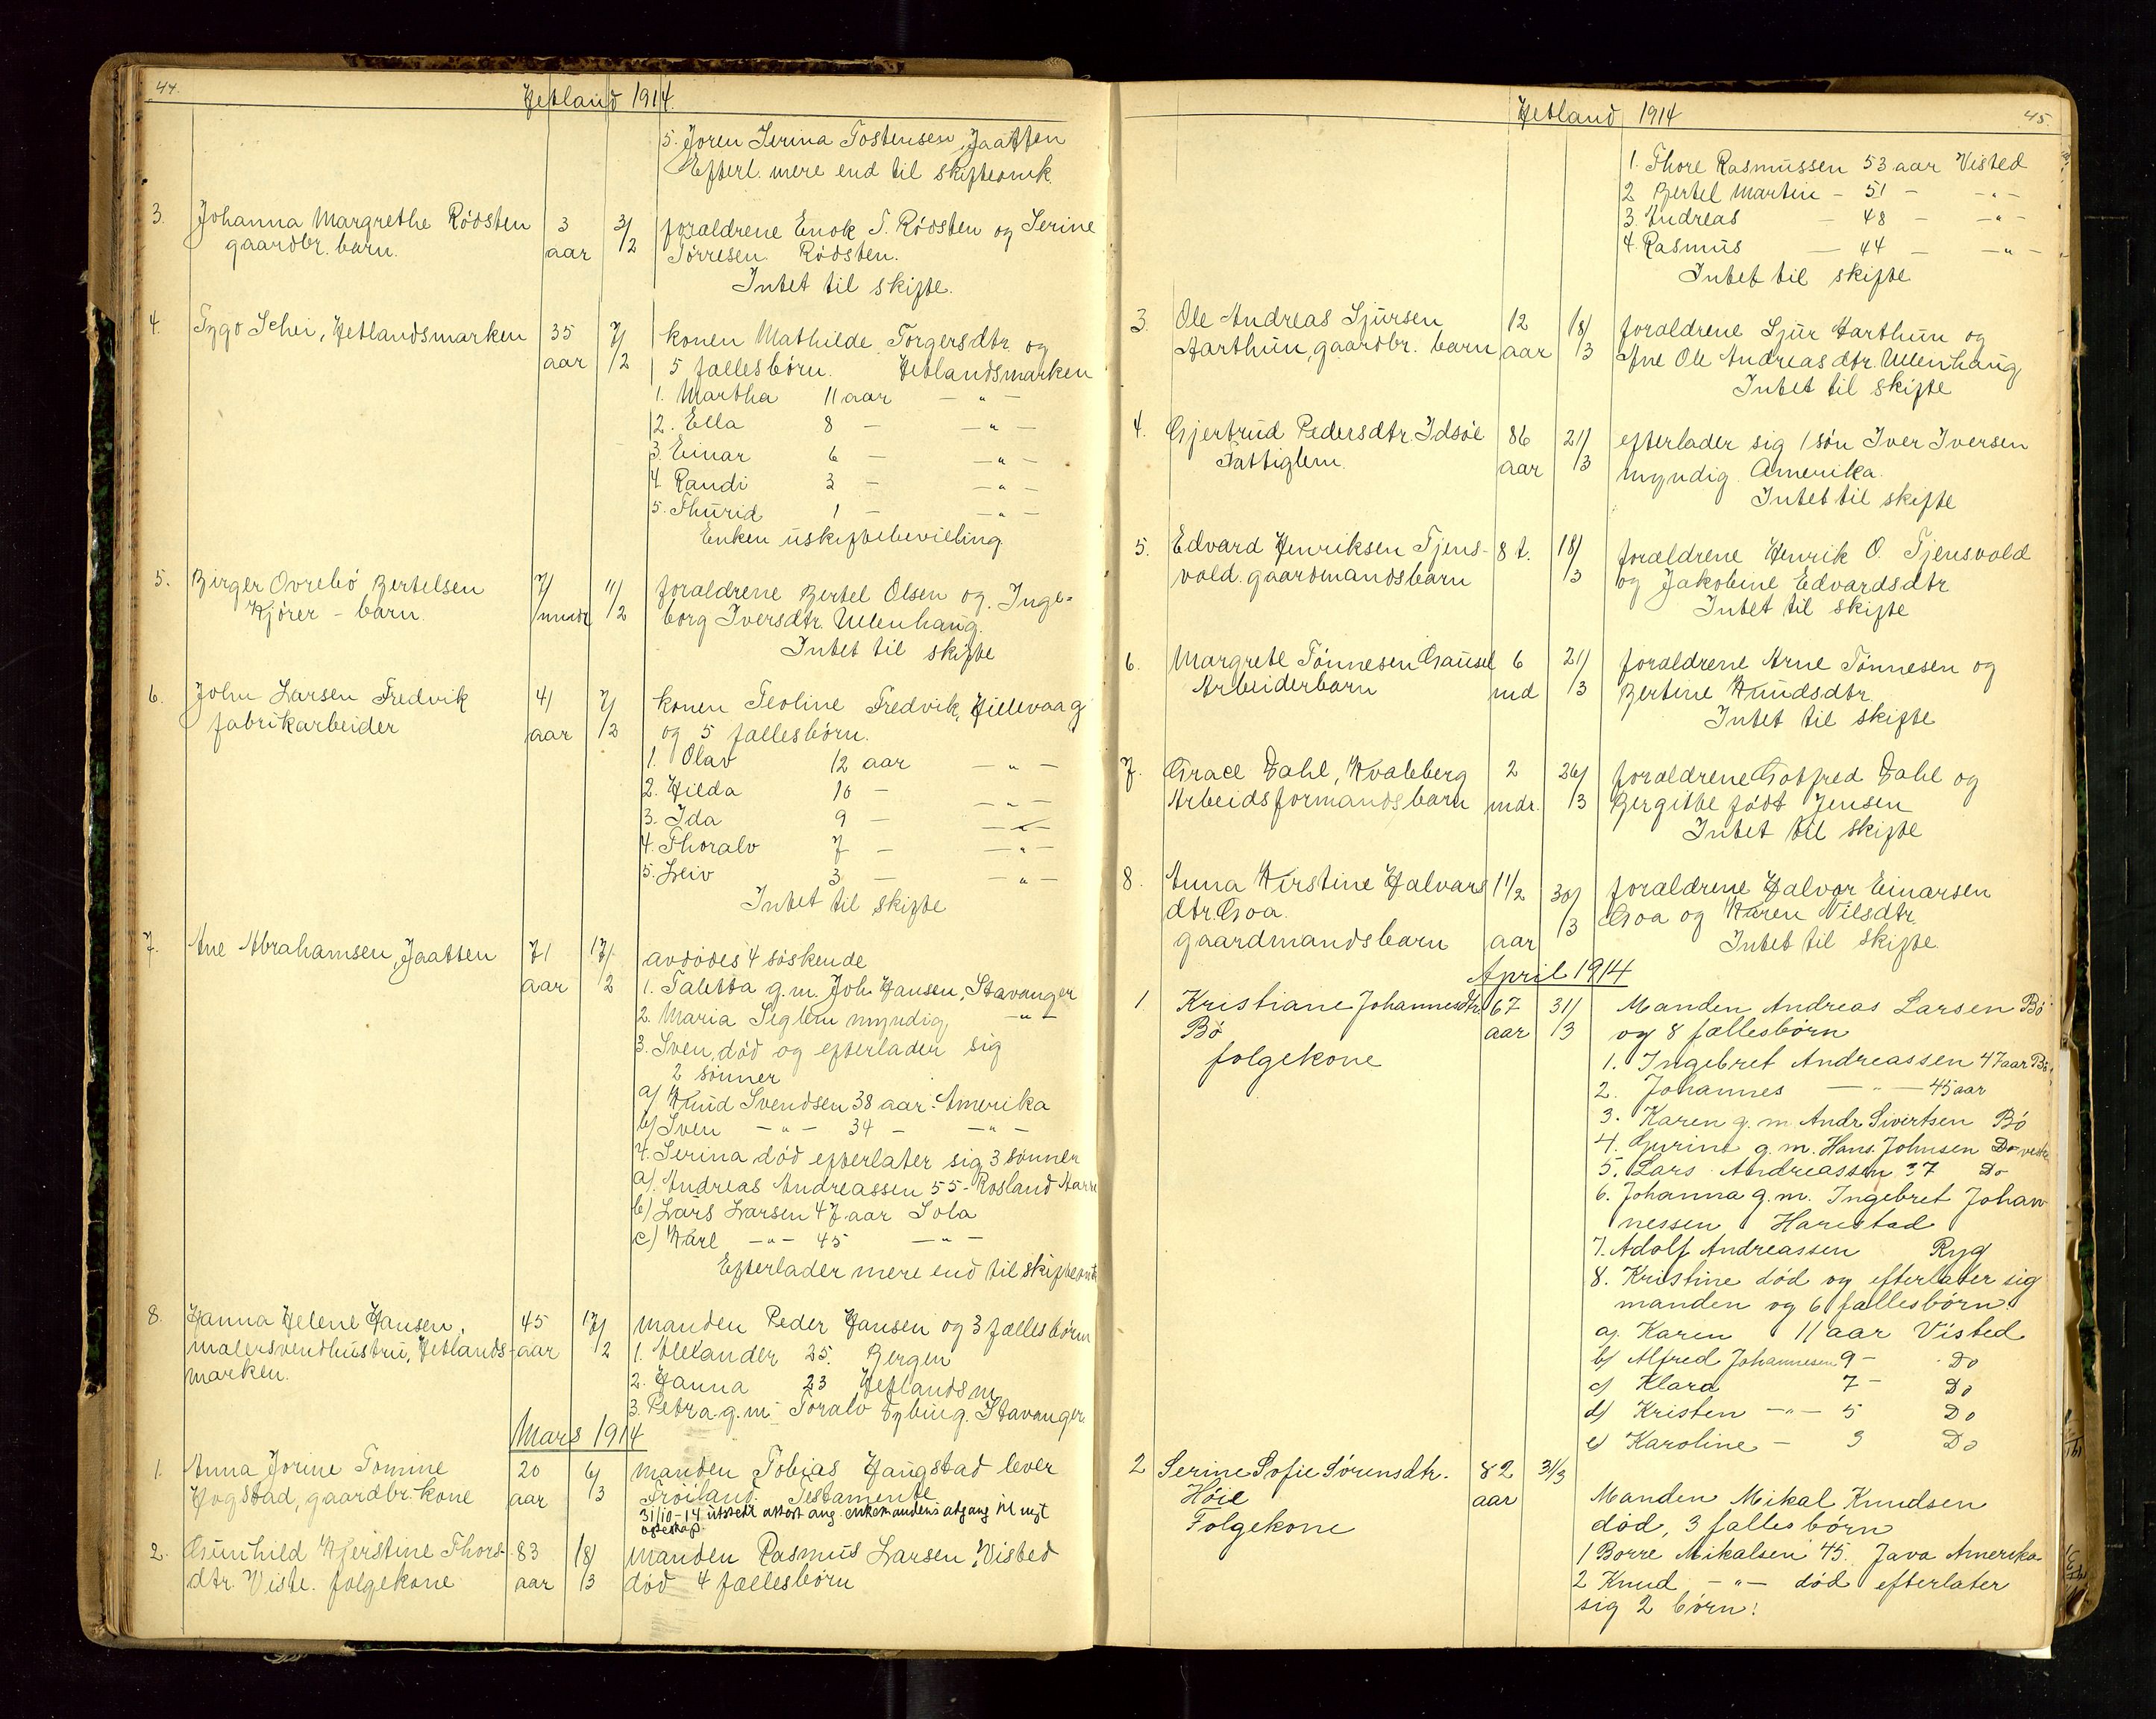 44.
Hetland 1914.
5. Joren Serina Tostensen, Jaatten
Efterl. mere end til skifteomk.
3. Johanna Margrethe Rødsten 3 3/ forældrene Enok T. Rødsten og Serine
gaardbr. barn. aar /2 Tørresen Rødsten.
Intet til skifte.
4. Tygo Schei, Hetlandsmarken 35 7/ konen Mathilde Torgersdtr. og
aar /2 5 fællesbørn. Hetlandsmarken
1. Martha 11 aar — " —
2. Ella 8 — — " —
3. Einar 6 — — " —
4. Randi 3 — — " —
5. Thurid 1 — — " —
Enken uskiftebevilling
5. Birger Ovrebø Bertelsen 7/ 11/ forældrene Bertel Olsen og Inge-
Kjører - barn. mndr /2 borg Iversdtr. Ullenhaug.
Intet til skifte
6. John Larsen Fredvik 41 7/ konen Teoline Fredvik, Hillevaag
fabrikarbeider aar /2 og 5 fællesbørn.
1. Olav 12 aar — " —
2. Hilda 10 — — " —
3. Ida 9 — — " —
4. Thoralv 7 — — " —
5. Leiv 3 — — " —
Intet til skifte
7. Ane Abrahamsen, Jaatten 71 17/ avdødes 4 søskende
aar /2 1. Taletta g.m. Joh. Hansen, Stavanger
2. Maria Seglem myndig, — " —
3. Sven, død og efterlader sig
2 sønner
a) Knud Svendsen 38 aar. Amerika
b) Sven — " — 34 — — " —
4. Serina død efterlater sig 3 sønner
a). Andreas Andreassen 55 - Rosland
b) Lars Larsen 47 aar Sola
c) Karl — " — 45 — " —
Efterlader mere end til skifteomk
8. Hanna Helene Hansen, 45 17/ manden Peder Hansen og 3 fællesbørn
malersvendhustru, Hetlands- aar /2 1. Alexander 25. Bergen
marken. 2. Hanna 23 Hetlandsm
3. Petra g.m. Toralv Nybing. Stavanger.
Mars 1914
1. Anna Jorine Tomine 20 6/ manden Tobias Haugstad lever
Hogstad, gaardbr. kone aar /3 Frøiland. Testamente
31/10-14 utstedt attest ang. enkemandens adgang til nyt
egteskap.
2. Gunhild Kjerstine Thors- 83 18/ manden Rasmus Larsen Visted
dtr. Viste. folgekone aar /3 død 4 fællesbørn
Hetland 1914
45.
1. Thore Rasmussen 53 aar Visted
2 Bertel Martin — 51 — — " —
3. Andreas — 48 — — " —
4. Rasmus — 44 — — " —
Intet til skifte
3. Ole Andreas Sjursen 12 18/ forældrene Sjur Aarthun og
Aarthun, gaardbr. barn aar /3 Ane Ole Andreasdtr. Ullenhaug
Intet til skifte
4. Gjertrud Pedersdtr. Idsøe 86 21/ efterlader sig 1 søn Iver Iversen
Fattiglem. aar /3 myndig. Amerika.
Intet til skifte
5. Edvard Henriksen Tjens- 8 t. 18/ forældrene Henrik O. Tjensvold
vold. gaardmandsbarn /3 og Jakobine Edvardsdtr
Intet til skifte
6. Margrete Tønnesen Gausel 6 21/ forældrene Arne Tønnesen og
Arbeiderbarn md /3 Bertine Knudsdtr.
Intet til skifte
7. Grace Dahl, Kvaleberg 2 26/ forældrene Gotfred Dahl og
Arbeidsformandsbarn mdr. /3 Bergithe født Jensen
Intet til skifte
8. Anna Kirstine Halvars 1 1/2 30/ forældrene Halvor Einarsen
dtr. Goa. /3 Goa og Karen Nilsdtr.
gaardmandsbarn aar Intet til skifte.
April 1914
1 Kristiane Johannesdtr. 67 31/ Manden Andreas Larsen Bø
Bø aar /3 og 8 fællesbørn
folgekone 1. Ingebret Andreassen 47 aar Bø
2. Johannes — " — 45 aar
3. Karen g.m. Andr. Sivertsen Bø
4. Gurine g.m. Hans Johnsen Do vestre
5. Lars Andreassen 37 Do
6. Johanna g.m. Ingebret Johan
nessen Harestad
7. Adolf Andreassen Ryg
8. Kristine død og efterlater sig
manden og 6 fallesbørn.
a) Karen 11 aar Visted
b) Alfred Johannesen 9 — Do
c) Klara 7 — Do
d) Kristen — " — 5 Do
e) Karoline — 3 Do
2 Serine Sofie Sørensdtr. 82 31/3
Høie aar Manden Mikal Knudsen
Folgekone død, 3 falles børn
1 Borre Mikalsen 45. Java Amerika
2 Knud — " — død efterlater
sig 2 børn: